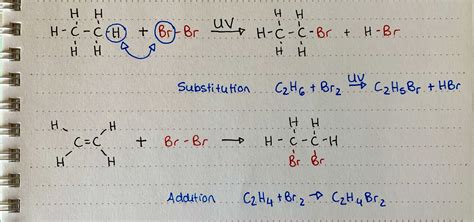 H H H H
H-C-C-H + Br-Br UV → H-C-C-Br + H-Br
H H H H
Substitution C₂H₆ + Br₂ UV → C₂H₅Br + HBr
H H H H
C=C + Br-Br → H-C-C-H
H H Br Br
Addition C₂H₄ + Br₂ → C₂H₄Br₂